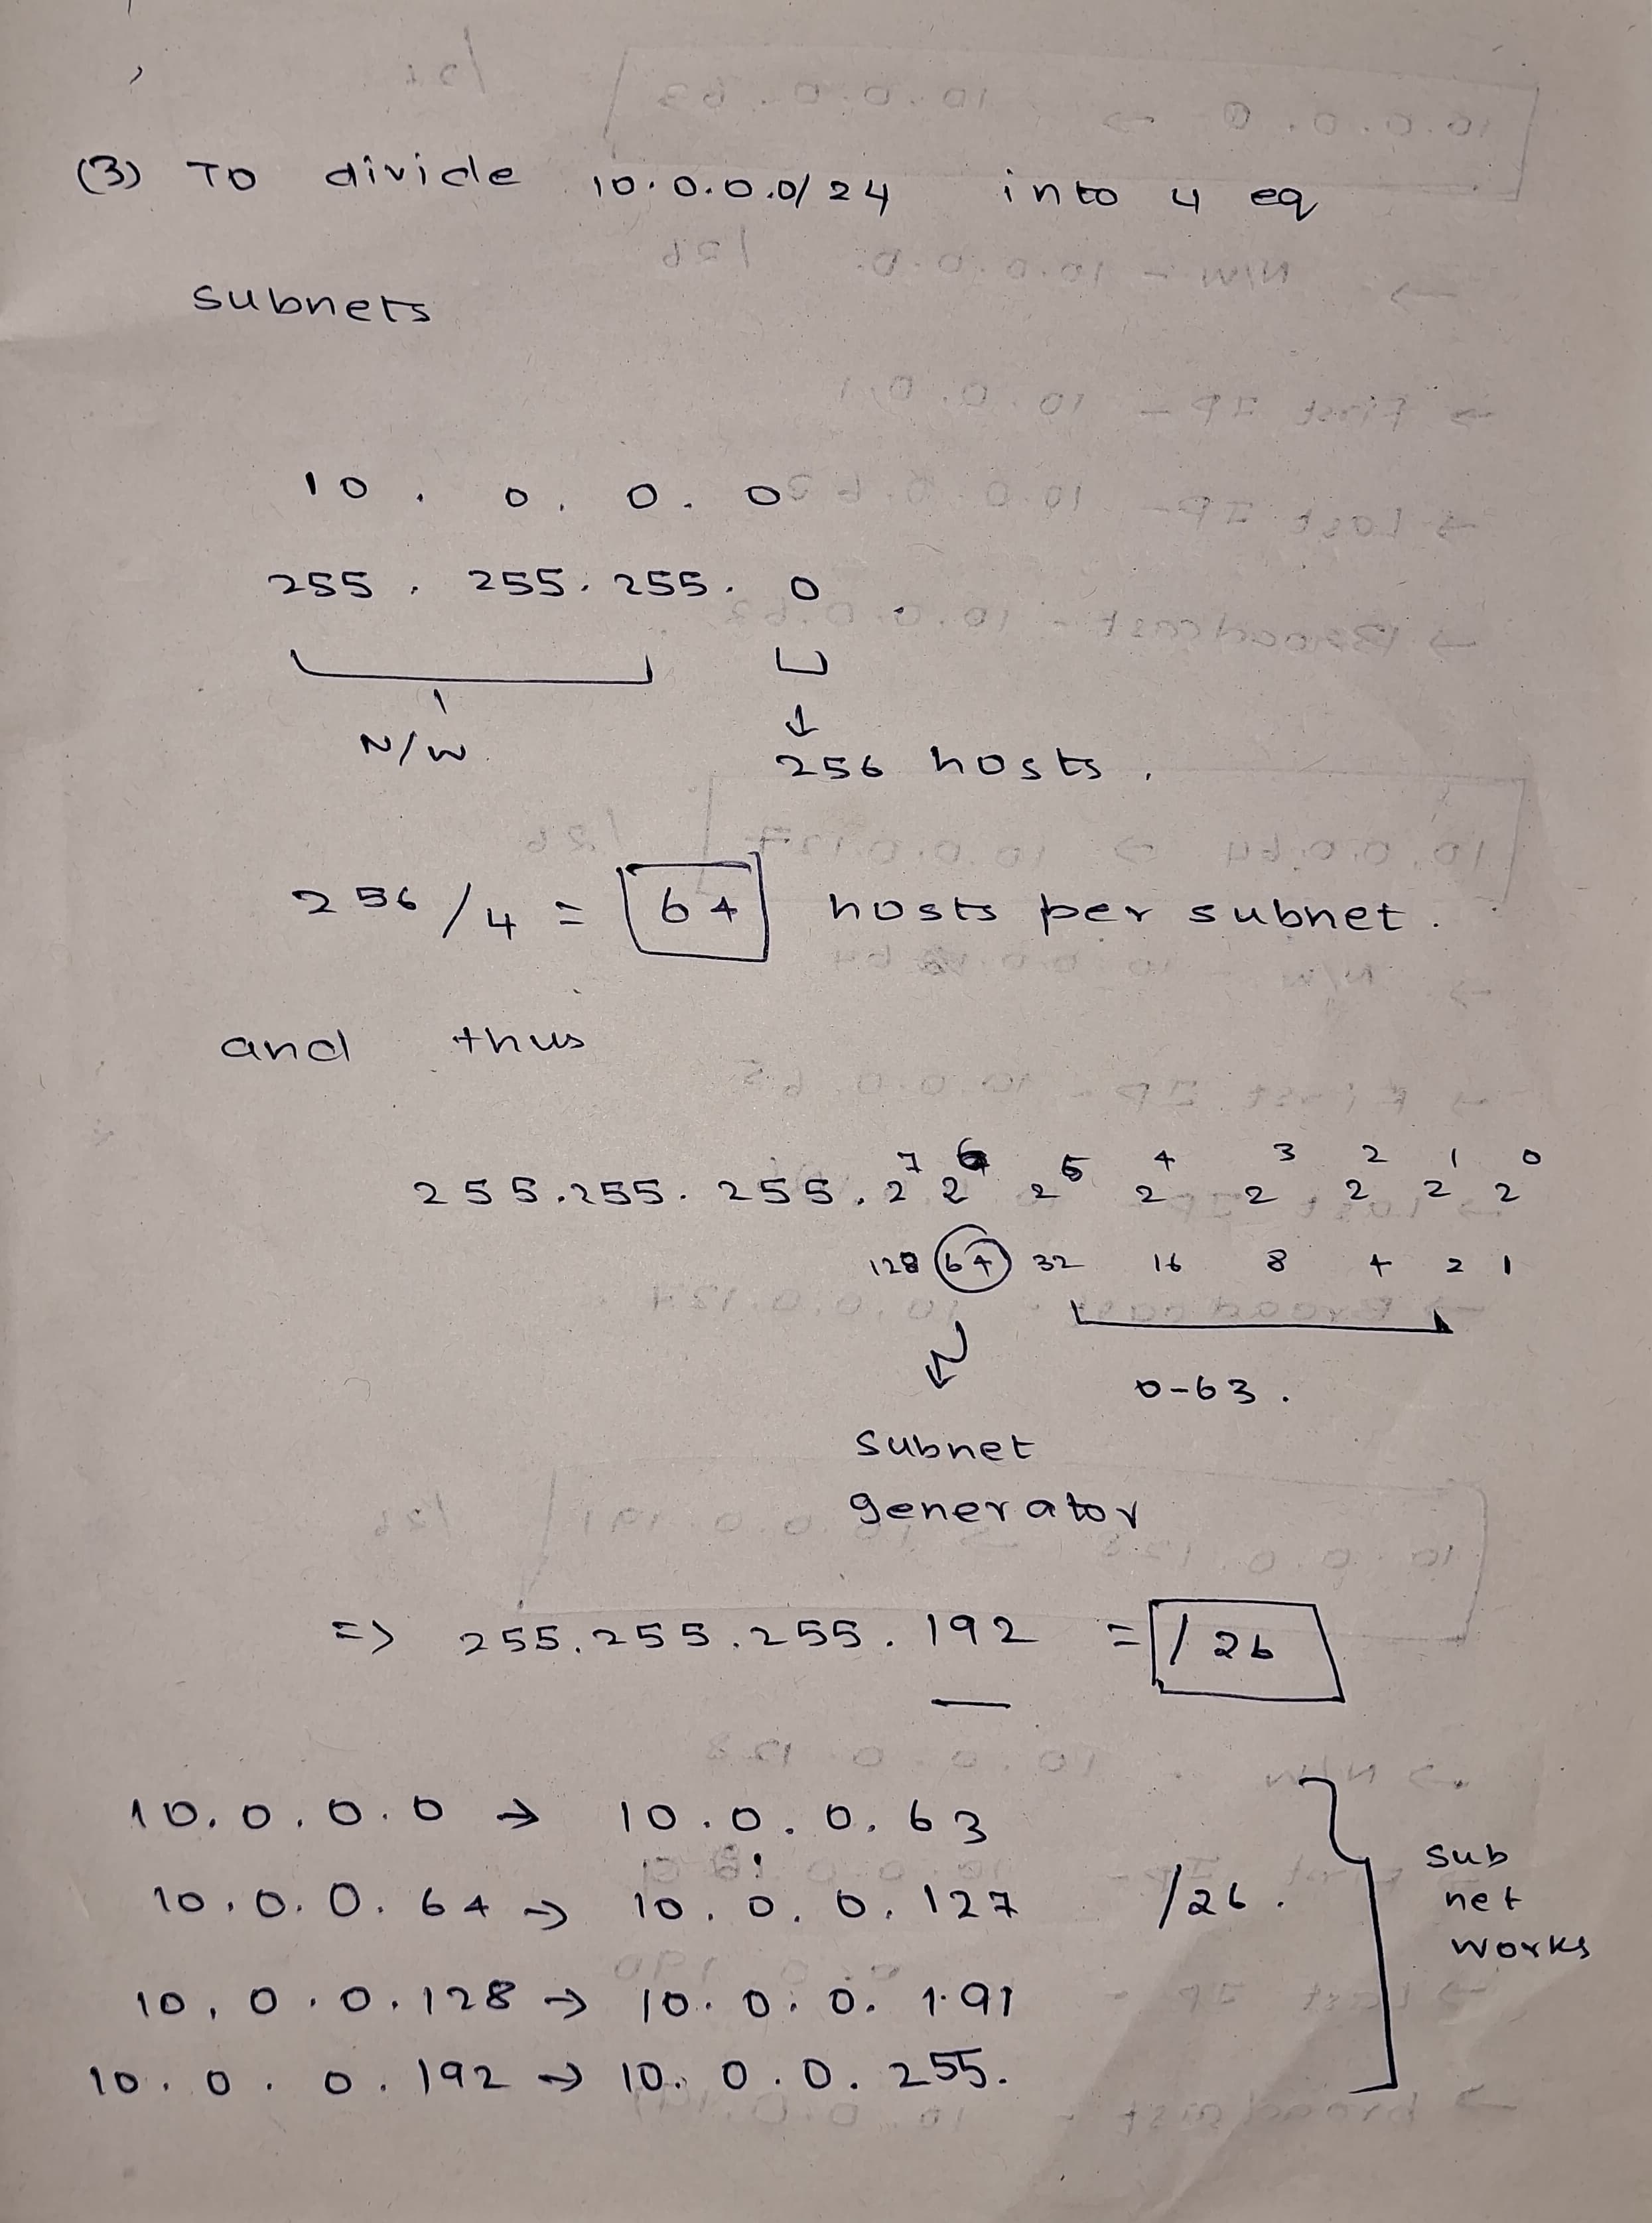 (3) To divide 10.0.0.0/24 into 4 eq
subnets
10 . 0 . 0 . 0
255 . 255 . 255 . 0
N/W
256 hosts .
256 / 4 = 64 hosts per subnet .
and thus
255.255.255. 2⁷ 2⁶ 2⁵ 2⁴ 2³ 2² 2¹ 2⁰
128 64 32 16 8 4 2 1
0-63 .
subnet
generator
=> 255.255.255.192 = /26
10.0.0.0 → 10.0.0.63
10.0.0.64 → 10.0.0.127 /26 .
10.0.0.128 → 10.0.0.191
10.0.0.192 → 10.0.0.255.
sub
net
works